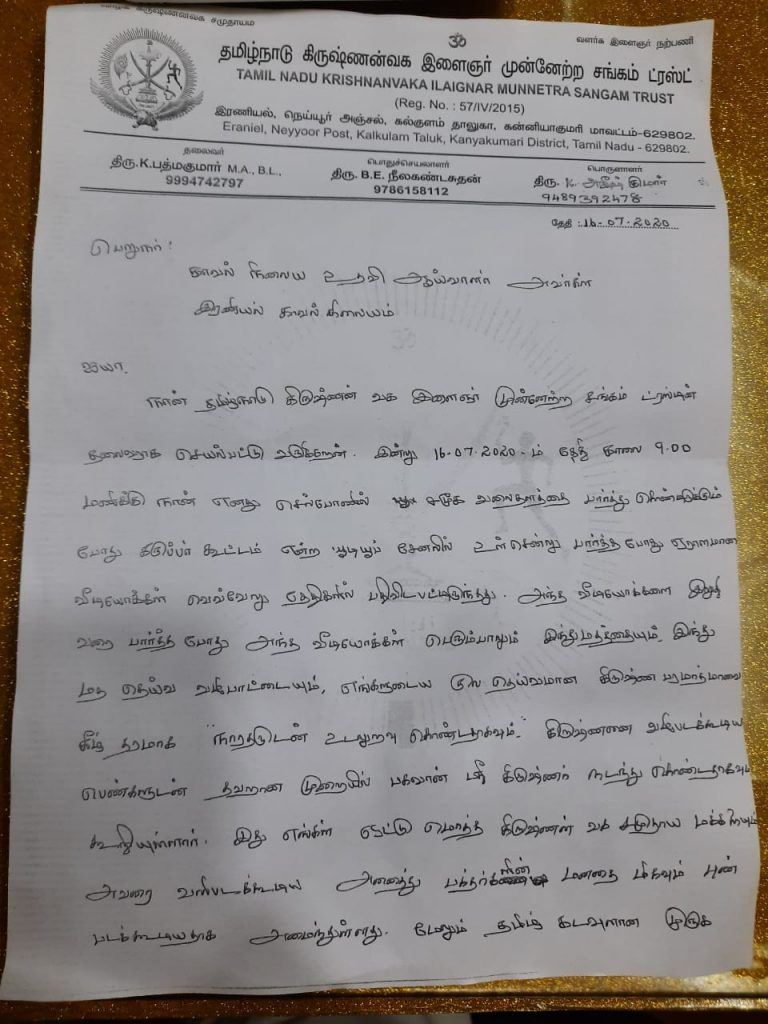 வாழ்க கிருஷ்ணன்வக சமுதாயம்
ௐ
வளர்க இளைஞர் நற்பணி
தமிழ்நாடு கிருஷ்ணன்வக இளைஞர் முன்னேற்ற சங்கம் ட்ரஸ்ட்
TAMIL NADU KRISHNANVAKA ILAIGNAR MUNNETRA SANGAM TRUST
(Reg. No. : 57/IV/2015)
இரணியல், நெய்யூர் அஞ்சல், கல்குளம் தாலுகா, கன்னியாகுமரி மாவட்டம்-629802.
Eraniel, Neyyoor Post, Kalkulam Taluk, Kanyakumari District, Tamil Nadu - 629802.
தலைவர்
திரு.K.பத்மகுமார் M.A., B.L.,
9994742797
பொதுச்செயலாளர்
திரு. B.E. நீலகண்டசுதன்
9786158112
பொருளாளர்
திரு. K. அஜீஷ் குமார்
9489392478
தேதி : 16-07-2020
பெறுநர் :
காவல் நிலைய உதவி ஆய்வாளர் அவர்கள்
இரணியல் காவல் நிலையம்
ஐயா,
நான் தமிழ்நாடு கிருஷ்ணன் வக இளைஞர் முன்னேற்ற சங்கம் ட்ரஸ்டின்
தலைவராக செயல்பட்டு வருகிறேன். இன்று 16-07-2020-ம் தேதி காலை 9.00
மணிக்கு நான் எனது செல்போனில் சமூக வலைதளத்தை பார்த்து கொண்டிருக்கும்
போது கருப்பர் கூட்டம் என்ற யூடியூப் சேனலில் உள்சென்று பார்த்த போது ஏராளமான
வீடியோக்கள் வெவ்வேறு தேதிகளில் பதிவிடபட்டிருந்தது. அந்த வீடியோக்களை இறுதி
வரை பார்த்த போது அந்த வீடியோக்கள் பெரும்பாலும் இந்துமதத்தையும், இந்து
மத தெய்வ வழிபாட்டையும், எங்களுடைய குல தெய்வமான கிருஷ்ண பரமாத்மாவை
கீழ் தரமாக "நாரதருடன் உடலுறவு கொண்டதாகவும்" கிருஷ்ணனை வழிபடக்கூடிய
பெண்களுடன் தவறான முறையில் பகவான் ஸ்ரீ கிருஷ்ணர் நடந்து கொண்டதாகவும்
கூறியுள்ளார். இது எங்கள் ஒட்டு மொத்த கிருஷ்ணன் வக சமுதாய மக்களையும்
அவரை வழிபடக்கூடிய அனைத்து பக்தர்களின் மனதை மிகவும் புண்
படக்கூடியதாக அமைந்துள்ளது. மேலும் தமிழ் கடவுளான முருக